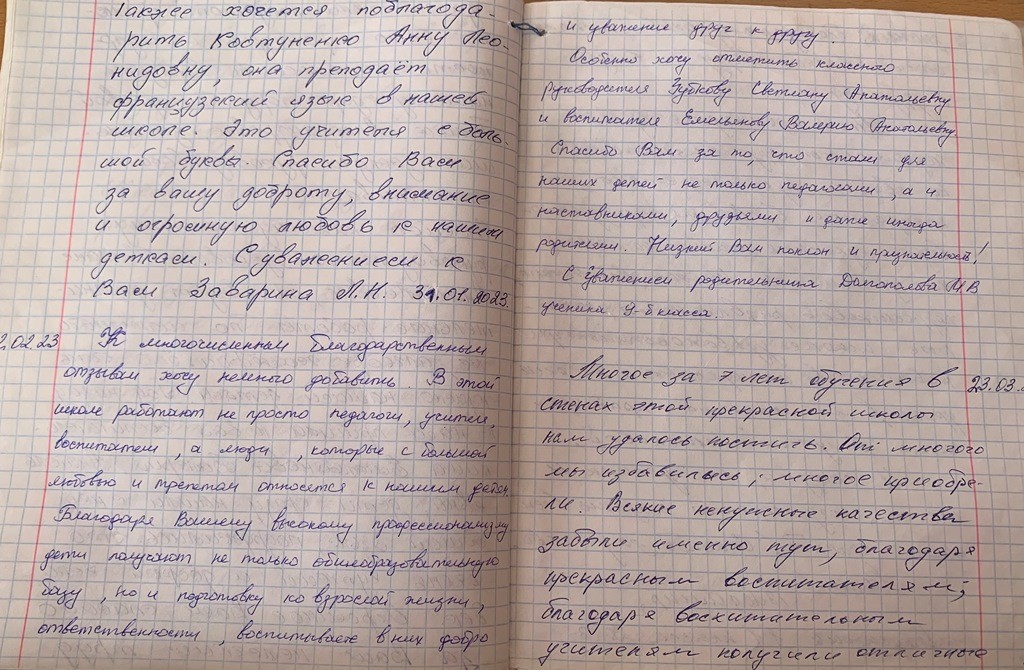 Также хочется поблагода-
рить Ковтуненко Анну Лео-
нидовну, она преподаёт
французский язык в нашей
школе. Это учитель с боль-
шой буквы. Спасибо Вам
за вашу доброту, внимание
и огромную любовь к нашим
деткам. С уважением к
Вам Забарина Л.Н. 31.01.2023.
2.02.23 К многочисленным благодарственным
отзывам хочу немного добавить. В этой
школе работают не просто педагоги, учителя,
воспитатели, а люди, которые с большой
любовью и трепетом относятся к нашим детям.
Благодаря Вашему высокому профессионализму
дети получают не только общеобразовательную
базу, но и подготовку ко взрослой жизни,
ответственности, воспитываете в них добро
и уважение друг к другу.
Особенно хочу отметить классного
руководителя Зубкову Светлану Анатольевну
и воспитателя Емельянову Валерию Анатольевну.
Спасибо Вам за то, что стали для
наших детей не только педагогами, а и
наставниками, друзьями и даже иногда
родителями. Низкий Вам поклон и признательность!
С Уважением родительница Долгополова М В
ученика 9-б класса.
Многое за 7 лет обучения в 23.03.
стенах этой прекрасной школы
нам удалось постичь. От многого
мы избавились; многое приобре-
ли. Всякие ненужные качества
забыли именно тут, благодаря
прекрасным воспитателям;
благодаря восхитительным
учителям получили отличные